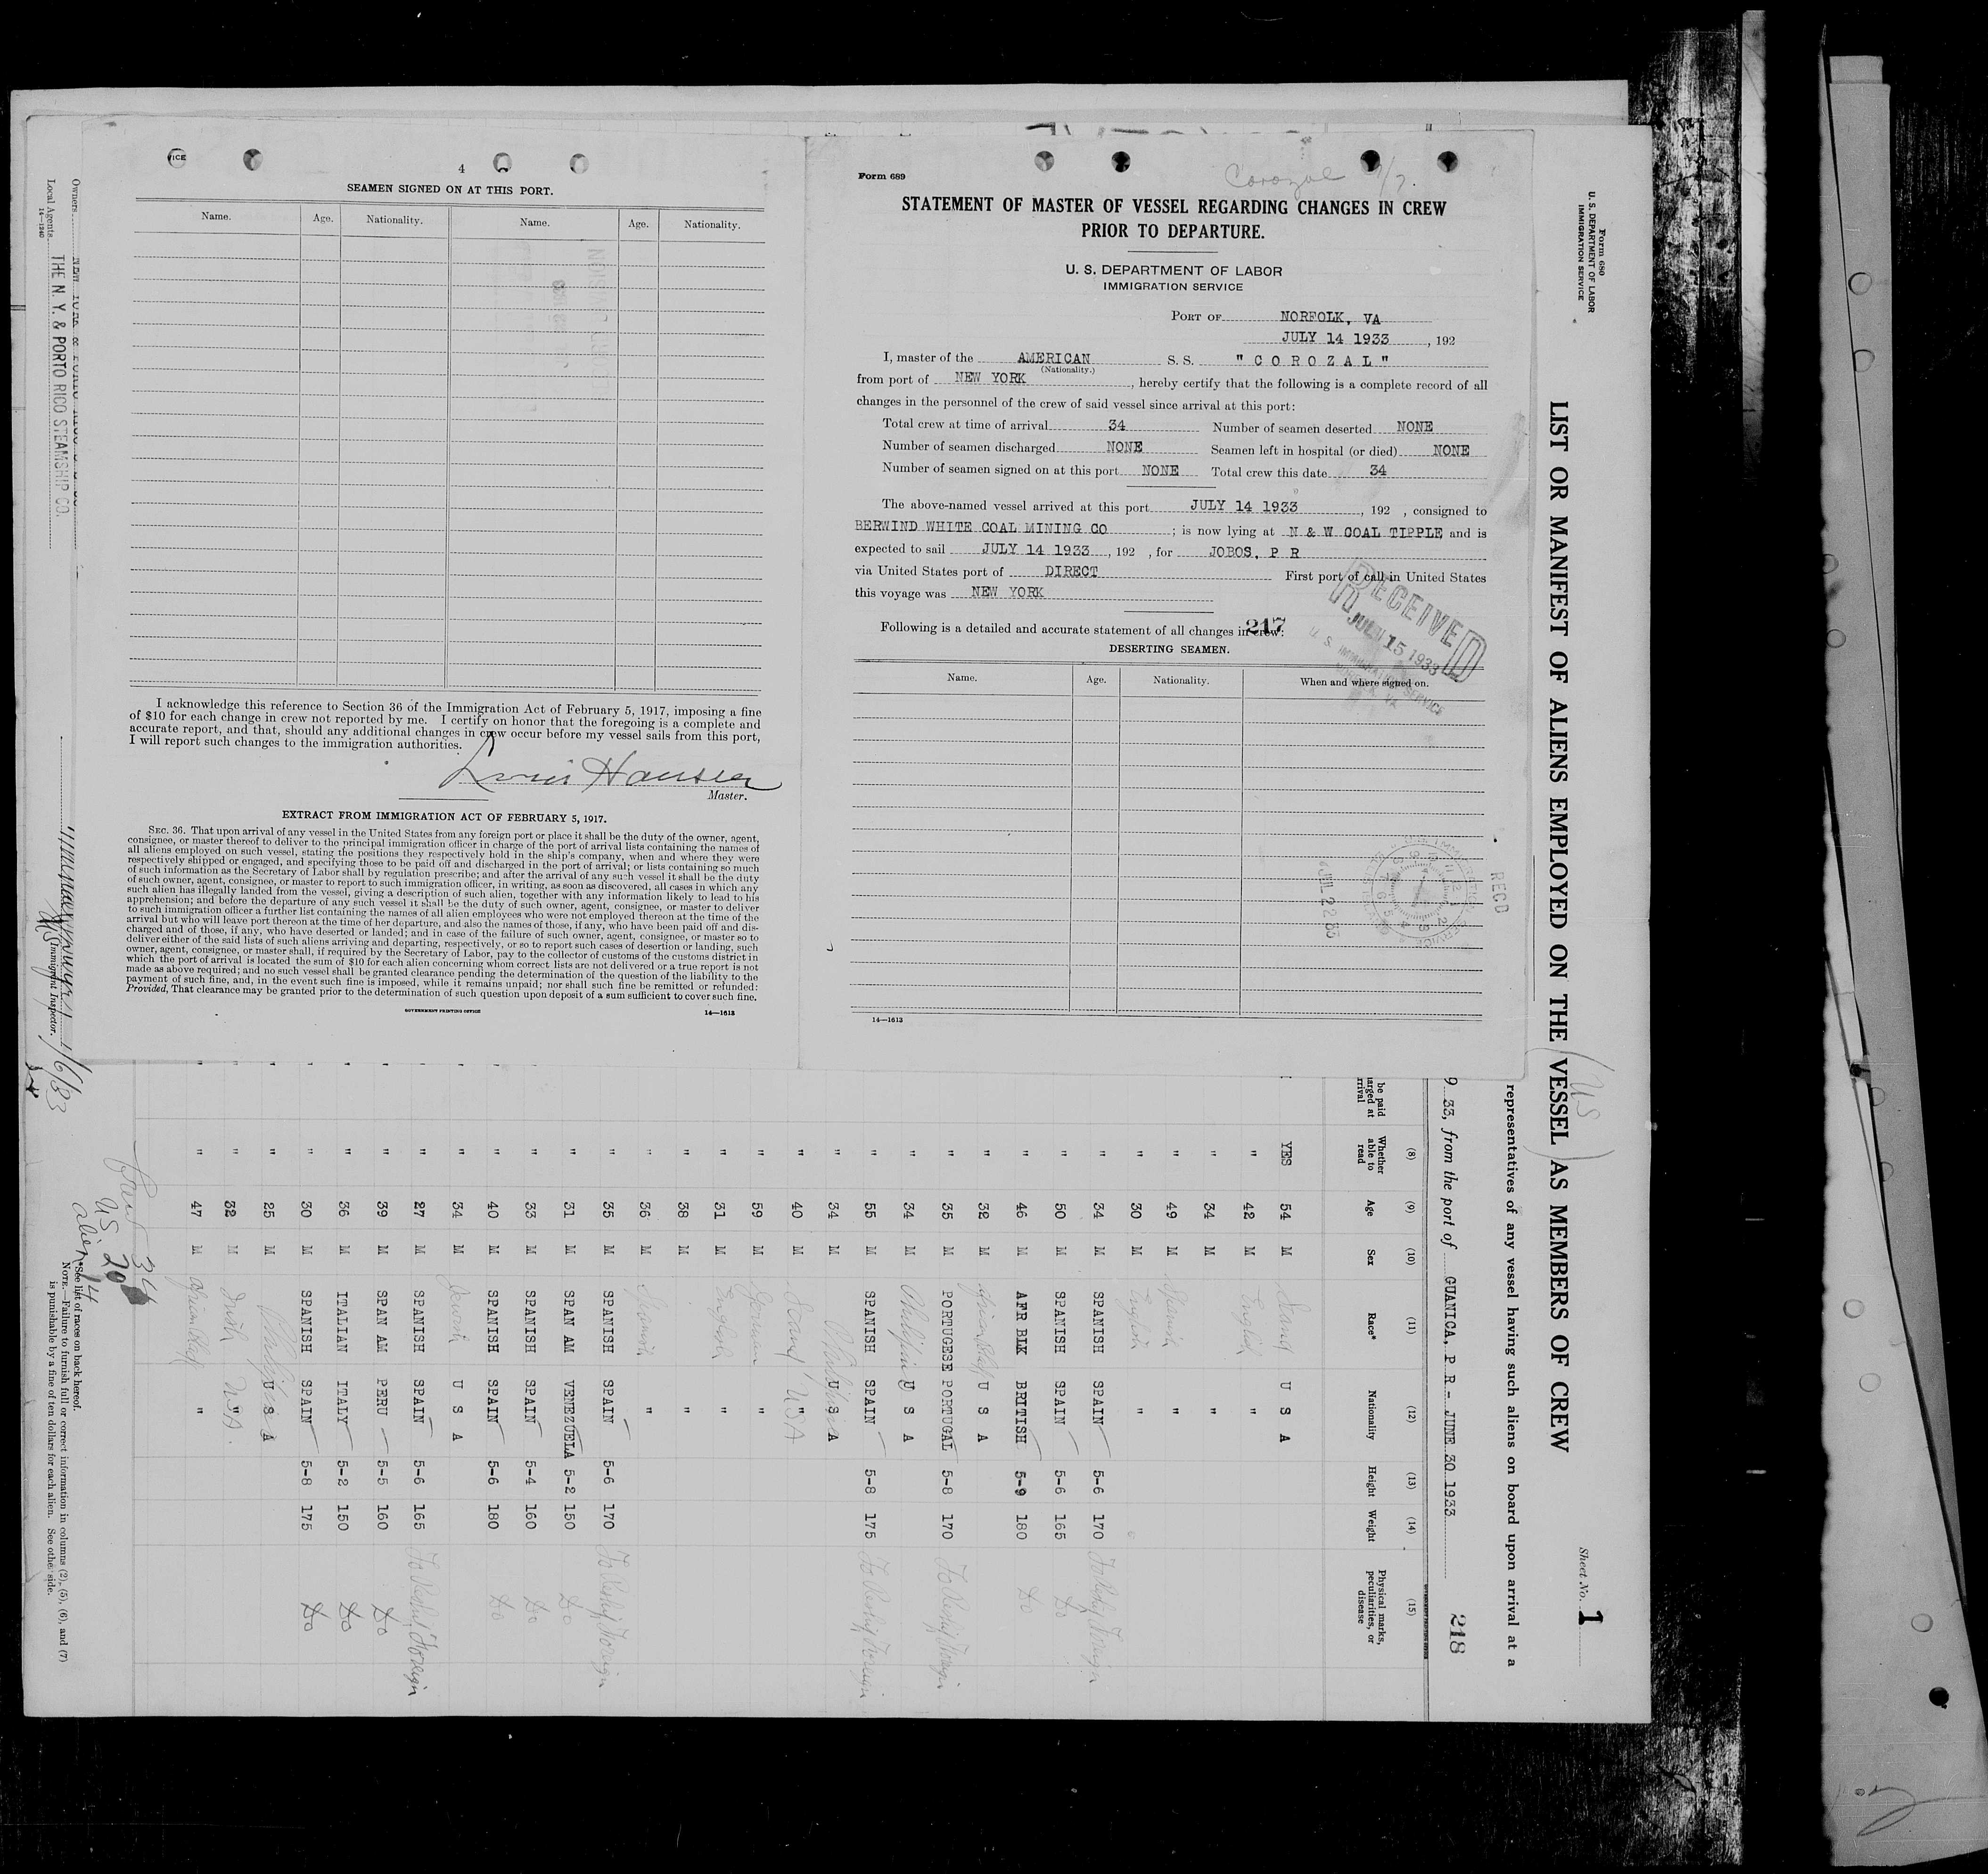 4
SEAMEN SIGNED ON AT THIS PORT.
Name. Age. Nationality. Name. Age. Nationality.
I acknowledge this reference to Section 36 of the Immigration Act of February 5, 1917, imposing a fine
of $10 for each change in crew not reported by me. I certify on honor that the foregoing is a complete and
accurate report, and that, should any additional changes in crew occur before my vessel sails from this port,
I will report such changes to the immigration authorities.
Louis Hansen
Master.
EXTRACT FROM IMMIGRATION ACT OF FEBRUARY 5, 1917.
SEC. 36. That upon arrival of any vessel in the United States from any foreign port or place it shall be the duty of the owner, agent,
consignee, or master thereof to deliver to the principal immigration officer in charge of the port of arrival lists containing the names of
all aliens employed on such vessel, stating the positions they respectively hold in the ship's company, when and where they were
respectively shipped or engaged, and specifying those to be paid off and discharged in the port of arrival; or lists containing so much
of such information as the Secretary of Labor shall by regulation prescribe; and after the arrival of any such vessel it shall be the duty
of such owner, agent, consignee, or master to report to such immigration officer, in writing, as soon as discovered, all cases in which any
such alien has illegally landed from the vessel, giving a description of such alien, together with any information likely to lead to his
apprehension; and before the departure of any such vessel it shall be the duty of such owner, agent, consignee, or master to deliver
to such immigration officer a further list containing the names of all alien employees who were not employed thereon at the time of the
arrival but who will leave port thereon at the time of her departure, and also the names of those, if any, who have been paid off and dis-
charged and of those, if any, who have deserted or landed; and in case of the failure of such owner, agent, consignee, or master so to
deliver either of the said lists of such aliens arriving and departing, respectively, or so to report such cases of desertion or landing, such
owner, agent, consignee, or master shall, if required by the Secretary of Labor, pay to the collector of customs of the customs district in
which the port of arrival is located the sum of $10 for each alien concerning whom correct lists are not delivered or a true report is not
made as above required; and no such vessel shall be granted clearance pending the determination of the question of the liability to the
payment of such fine, and, in the event such fine is imposed, while it remains unpaid; nor shall such fine be remitted or refunded:
Provided, That clearance may be granted prior to the determination of such question upon deposit of a sum sufficient to cover such fine.
GOVERNMENT PRINTING OFFICE
14—1613
Form 689
Corozal
STATEMENT OF MASTER OF VESSEL REGARDING CHANGES IN CREW
PRIOR TO DEPARTURE.
U. S. DEPARTMENT OF LABOR
IMMIGRATION SERVICE
PORT OF NORFOLK, VA
JULY 14 1933, 192
I, master of the AMERICAN S. S. "COROZAL"
(Nationality.)
from port of NEW YORK, hereby certify that the following is a complete record of all
changes in the personnel of the crew of said vessel since arrival at this port:
Total crew at time of arrival 34 Number of seamen deserted NONE
Number of seamen discharged NONE Seamen left in hospital (or died) NONE
Number of seamen signed on at this port NONE Total crew this date 34
The above-named vessel arrived at this port JULY 14 1933, 192 , consigned to
BERWIND WHITE COAL MINING CO; is now lying at N & W COAL TIPPLE and is
expected to sail JULY 14 1933, 192 , for JOBOS, P R
via United States port of DIRECT First port of call in United States
this voyage was NEW YORK
Following is a detailed and accurate statement of all changes in crew:
217
RECEIVED
JUL 15 1933
U. S. IMMIGRATION SERVICE
NORFOLK, VA
DESERTING SEAMEN.
Name. Age. Nationality. When and where signed on.
RECD
14—1613
Form 680
U. S. DEPARTMENT OF LABOR
IMMIGRATION SERVICE
LIST OR MANIFEST OF ALIENS EMPLOYED ON THE VESSEL AS MEMBERS OF CREW
(US)
Sheet No. 1
representatives of any vessel having such aliens on board upon arrival at a
33, from the port of GUANICA, P R - JUNE 30 1933
218
(8) (9) (10) (11) (12) (13) (14) (15)
Whether able to read Age Sex Race* Nationality Height Weight Physical marks, peculiarities, or disease
YES 54 M Scand U S A
" 42 M English "
" 34 M "
" 49 M Spanish "
" 30 M English "
" 34 M SPANISH SPAIN 5-6 170
" 50 M SPANISH SPAIN 5-6 165 Do
" 46 M AFR BLK BRITISH 5-9 180 Do
" 32 M U S A
" 35 M PORTUGESE PORTUGAL 5-8 170
" 34 M U S A
" 55 M SPANISH SPAIN 5-8 175
" 34 M U S A
" 40 M Scand " USA
" 59 M German "
" 31 M English "
" 38 M "
" 36 M Spanish "
" 35 M SPANISH SPAIN 5-6 170
" 31 M SPAN AM VENEZUELA 5-2 150 Do
" 33 M SPANISH SPAIN 5-4 160 Do
" 40 M SPANISH SPAIN 5-6 180 Do
" 34 M U S A
" 27 M SPANISH SPAIN 5-6 165
" 39 M SPAN AM PERU 5-5 160 Do
" 36 M ITALIAN ITALY 5-2 150 Do
" 30 M SPANISH SPAIN 5-8 175 Do
" 25 M U S A
" 32 M Irish " USA.
" 47 M "
Crew 34
US 20
alien 14
*See list of races on back hereof.
NOTE.—Failure to furnish full or correct information in columns (2), (5), (6), and (7)
is punishable by a fine of ten dollars for each alien. See other side.
Immigrant Inspector.
Owners
Local Agents THE N. Y. & PORTO RICO STEAMSHIP CO.
14—1240